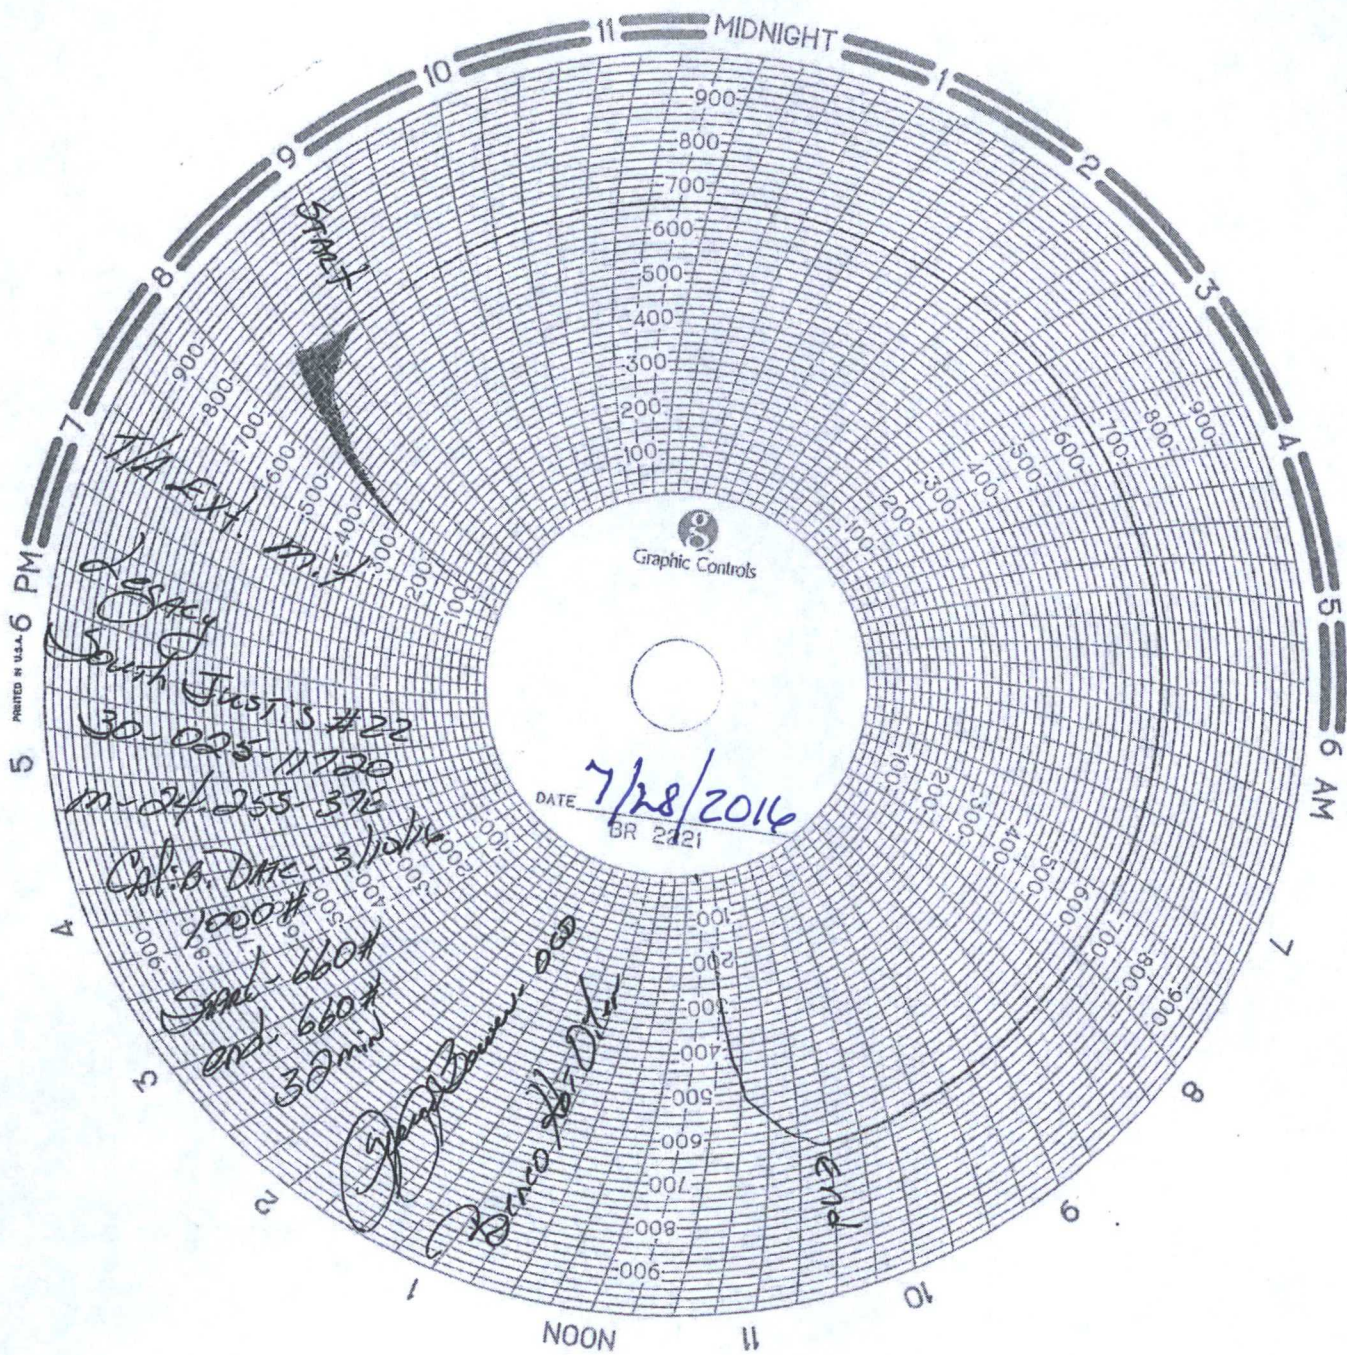 MIDNIGHT
1
2
3
4
5
6 AM
7
8
9
10
11
NOON
1
2
3
4
5
6 PM
7
8
9
10
11
PRINTED IN U.S.A.
900
800
700
600
500
400
300
200
100
900
800
700
600
500
400
300
200
100
900
800
700
600
500
400
300
200
100
100
200
300
400
500
600
700
800
900
900
800
700
600
500
400
300
200
100
900
800
700
600
500
400
300
200
100
g
Graphic Controls
DATE 7/28/2016
BR 2221
START
T/A Ext.
Legacy
South Justis #22
30-025-11720
m-24-255-37E
Calib. DATE - 3/10/16
1000#
Start - 660#
end - 660#
32 min
END